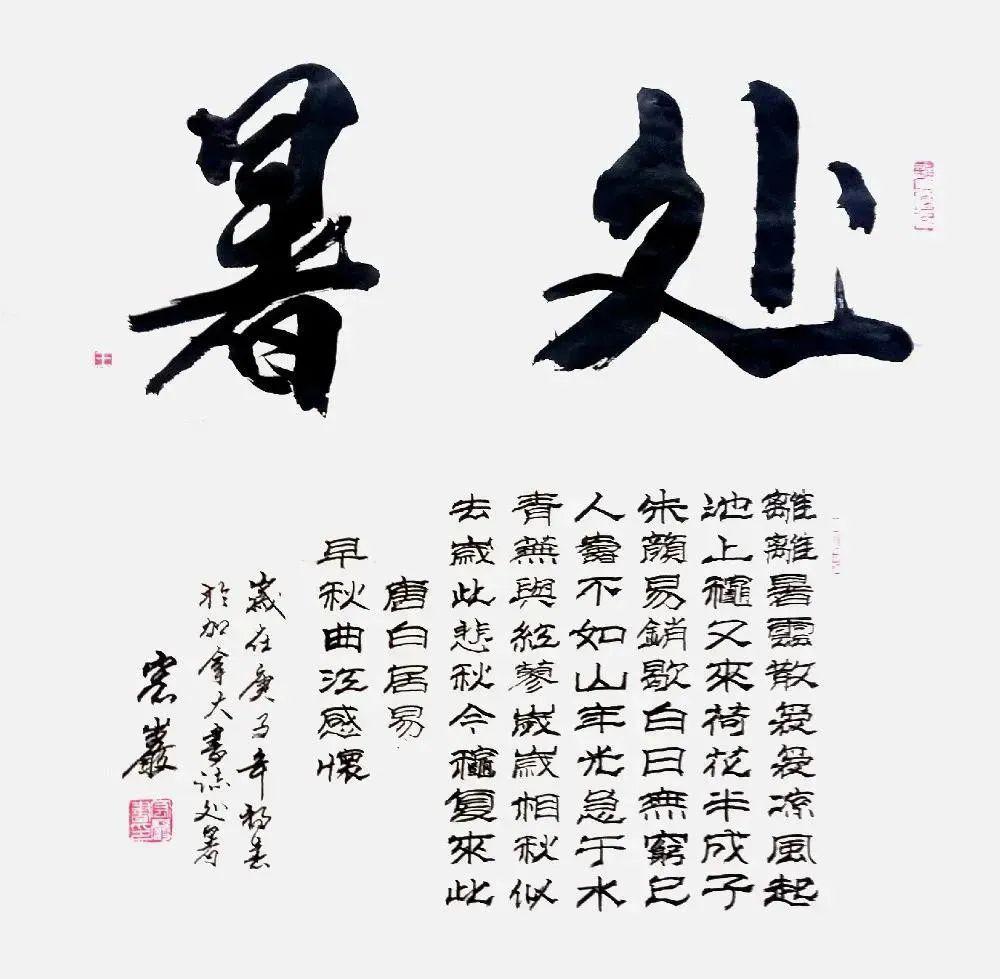 处暑
離離暑雲散裊裊凉風起
池上穐又來荷花半成子
朱顔易銷歇白日無窮已
人壽不如山年光急于水
青蕪與紅蓼歲歲相秋似
去歲此悲秋今穐复來此
唐白居易
早秋曲江感懷
歲在庚子年
於加拿大書誌处暑
巖